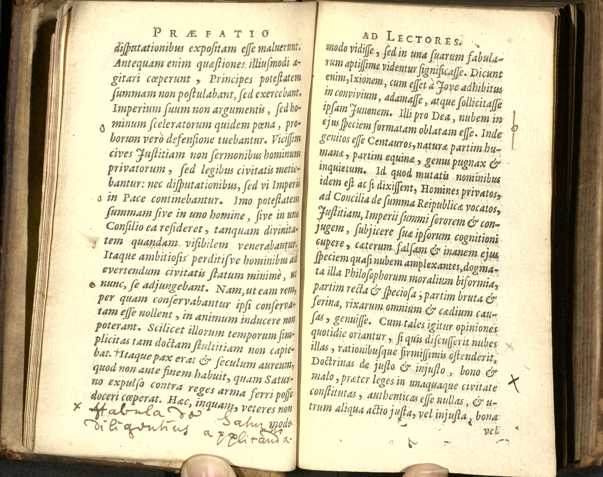 PRÆFATIO
disputationibus expositam esse maluerunt.
Antequam enim quæstiones illiusmodi a-
gitari cœperunt, Principes potestatem
summam non postulabant, sed exercebant.
Imperium suum non argumentis, sed ho-
minum sceleratorum quidem pœna, pro-
borum verò defensione tuebantur. Vicissim
cives Justitiam non sermonibus hominum
privatorum, sed legibus civitatis metie-
bantur: nec disputationibus, sed vi Imperii
in Pace continebantur. Imo potestatem
summam sive in uno homine, sive in uno
Consilio ea resideret, tanquam divinita-
tem quandam visibilem venerabantur.
Itaque ambitiosis perditisve hominibus ad
evertendum civitatis statum minimè, ut
nunc, se adjungebant. Nam, ut eam rem,
per quam conservabantur ipsi conserva-
tam esse nollent, in animum inducere non
poterant. Scilicet illorum temporum sim-
plicitas tam doctam stultitiam non capie-
bat. Itaque pax erat & seculum aureum,
quod non ante finem habuit, quam Satur-
no expulso contra reges arma ferri posse
doceri cœperat. Hæc, inquam, veteres non
modo
x ffabula de Satur
diligentius applicanda.
AD LECTORES.
modo vidisse, sed in una suarum fabula-
rum aptissime videntur significasse. Dicunt
enim, Ixionem, cum esset à Jove adhibitus
in convivium, adamasse, atque sollicitasse
ipsam Junonem. Illi pro Dea, nubem in
ejus speciem formatam oblatam esse. Inde
genitos esse Centauros, naturæ partim hu-
manæ, partim equinæ, genus pugnax &
inquietum. Id quod mutatis nominibus
idem est ac si dixissent, Homines privatos,
ad Concilia de summa Reipublicæ vocatos,
Justitiam, Imperii summi sororem & con-
jugem, subjicere suæ ipsorum cognitioni
cupere, cæterum falsam & inanem ejus
speciem quasi nubem amplexantes, dogma-
ta illa Philosophorum moralium biformia,
partim recta & speciosa, partim bruta &
ferina, rixarum omnium & cædium cau-
sas, genuisse. Cum tales igitur opiniones
quotidie oriantur, si quis discusserit nubes
illas, rationibusque firmissimis ostenderit,
Doctrinas de justo & injusto, bono &
malo, præter leges in unaquaque civitate
constitutas, authenticas esse nullas, & u-
trum aliqua actio justa, vel injusta, bona
vel